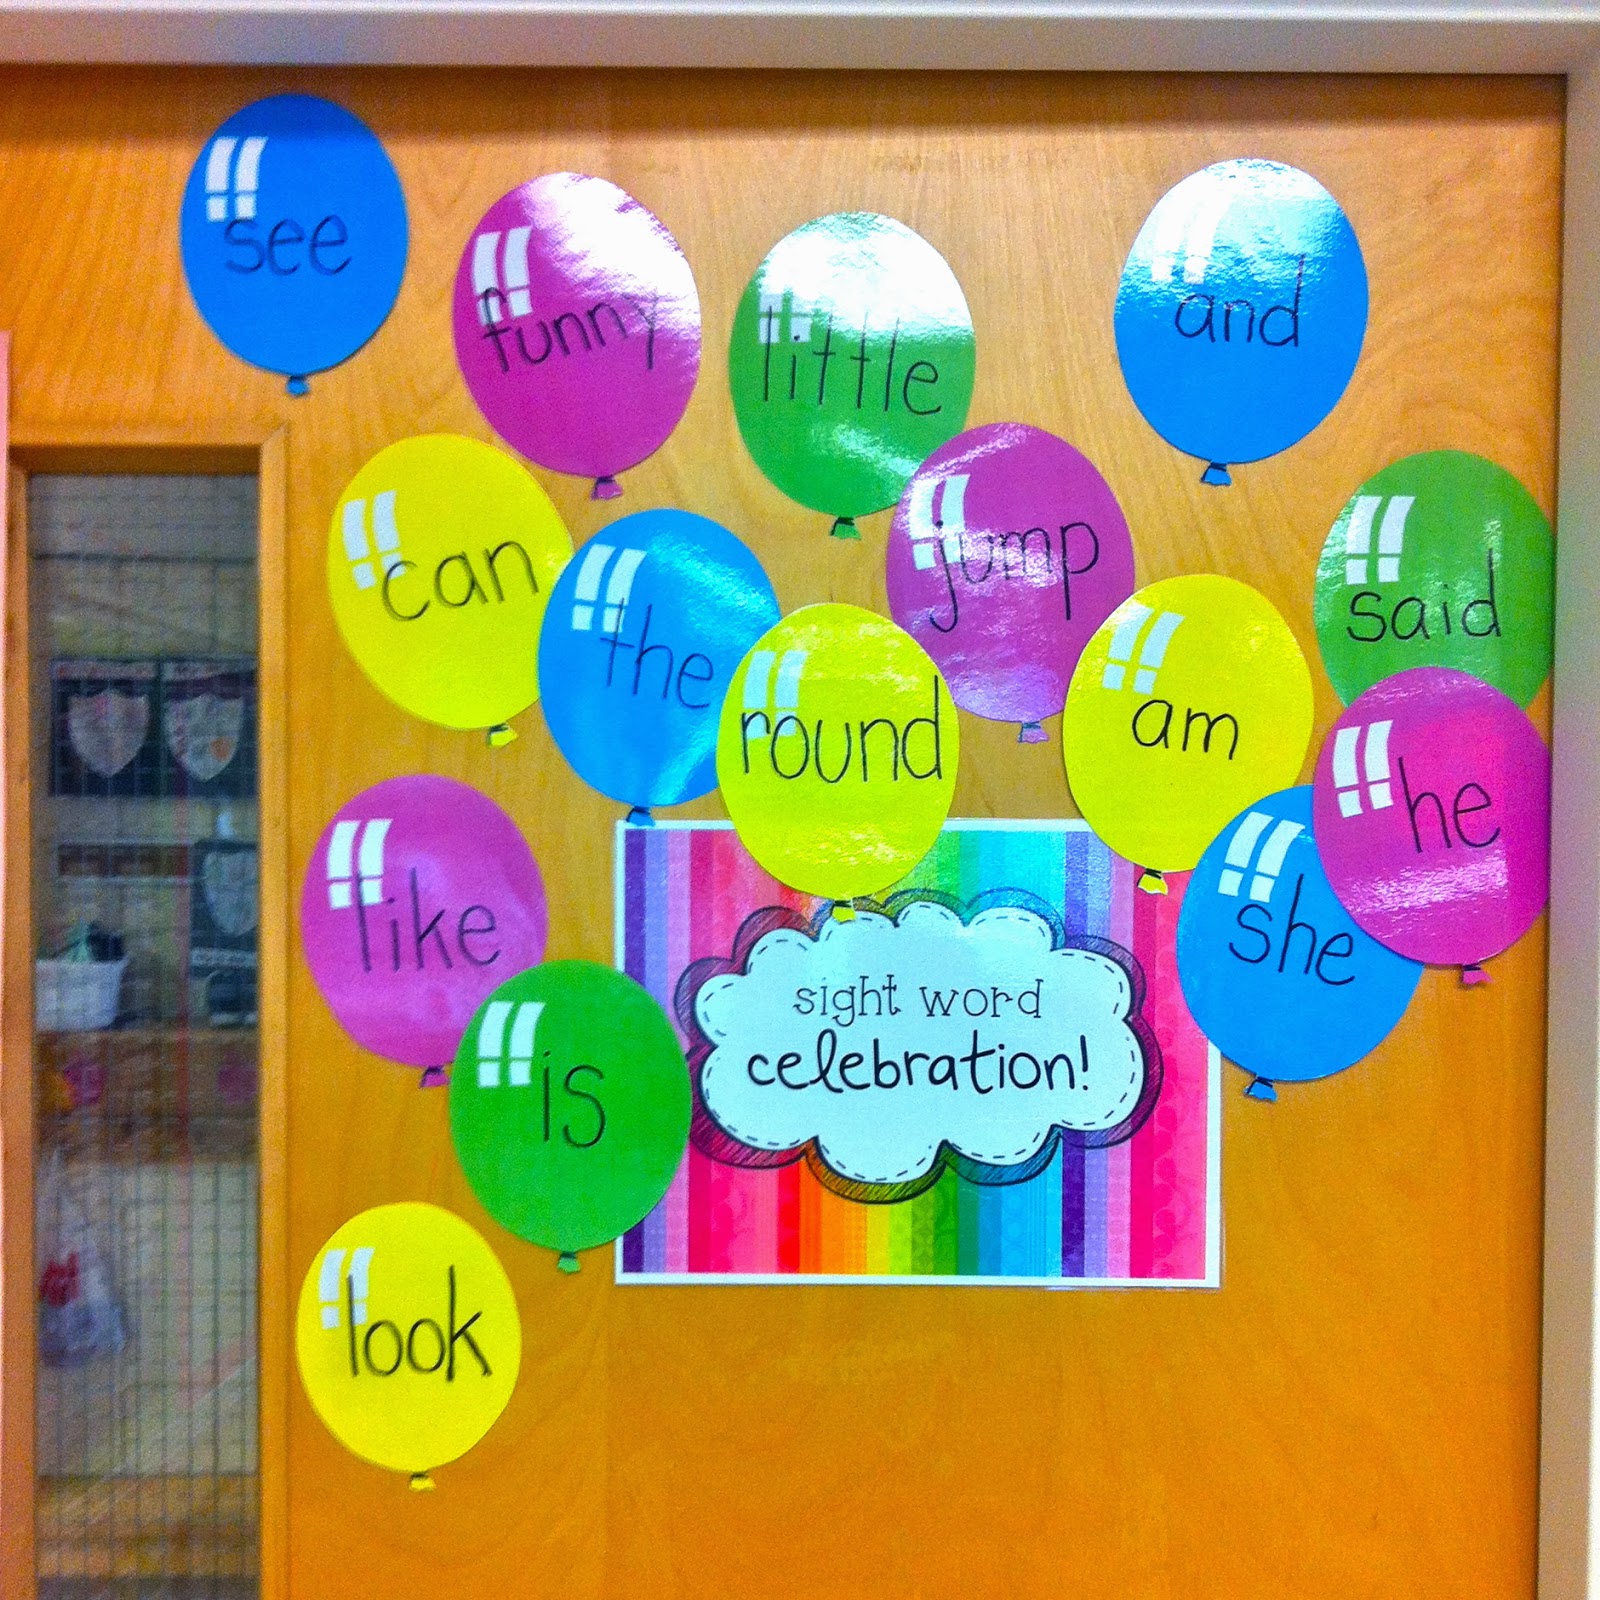 see
funny
little
and
can
the
jump
said
round
am
he
like
she
is
sight word
celebration!
look